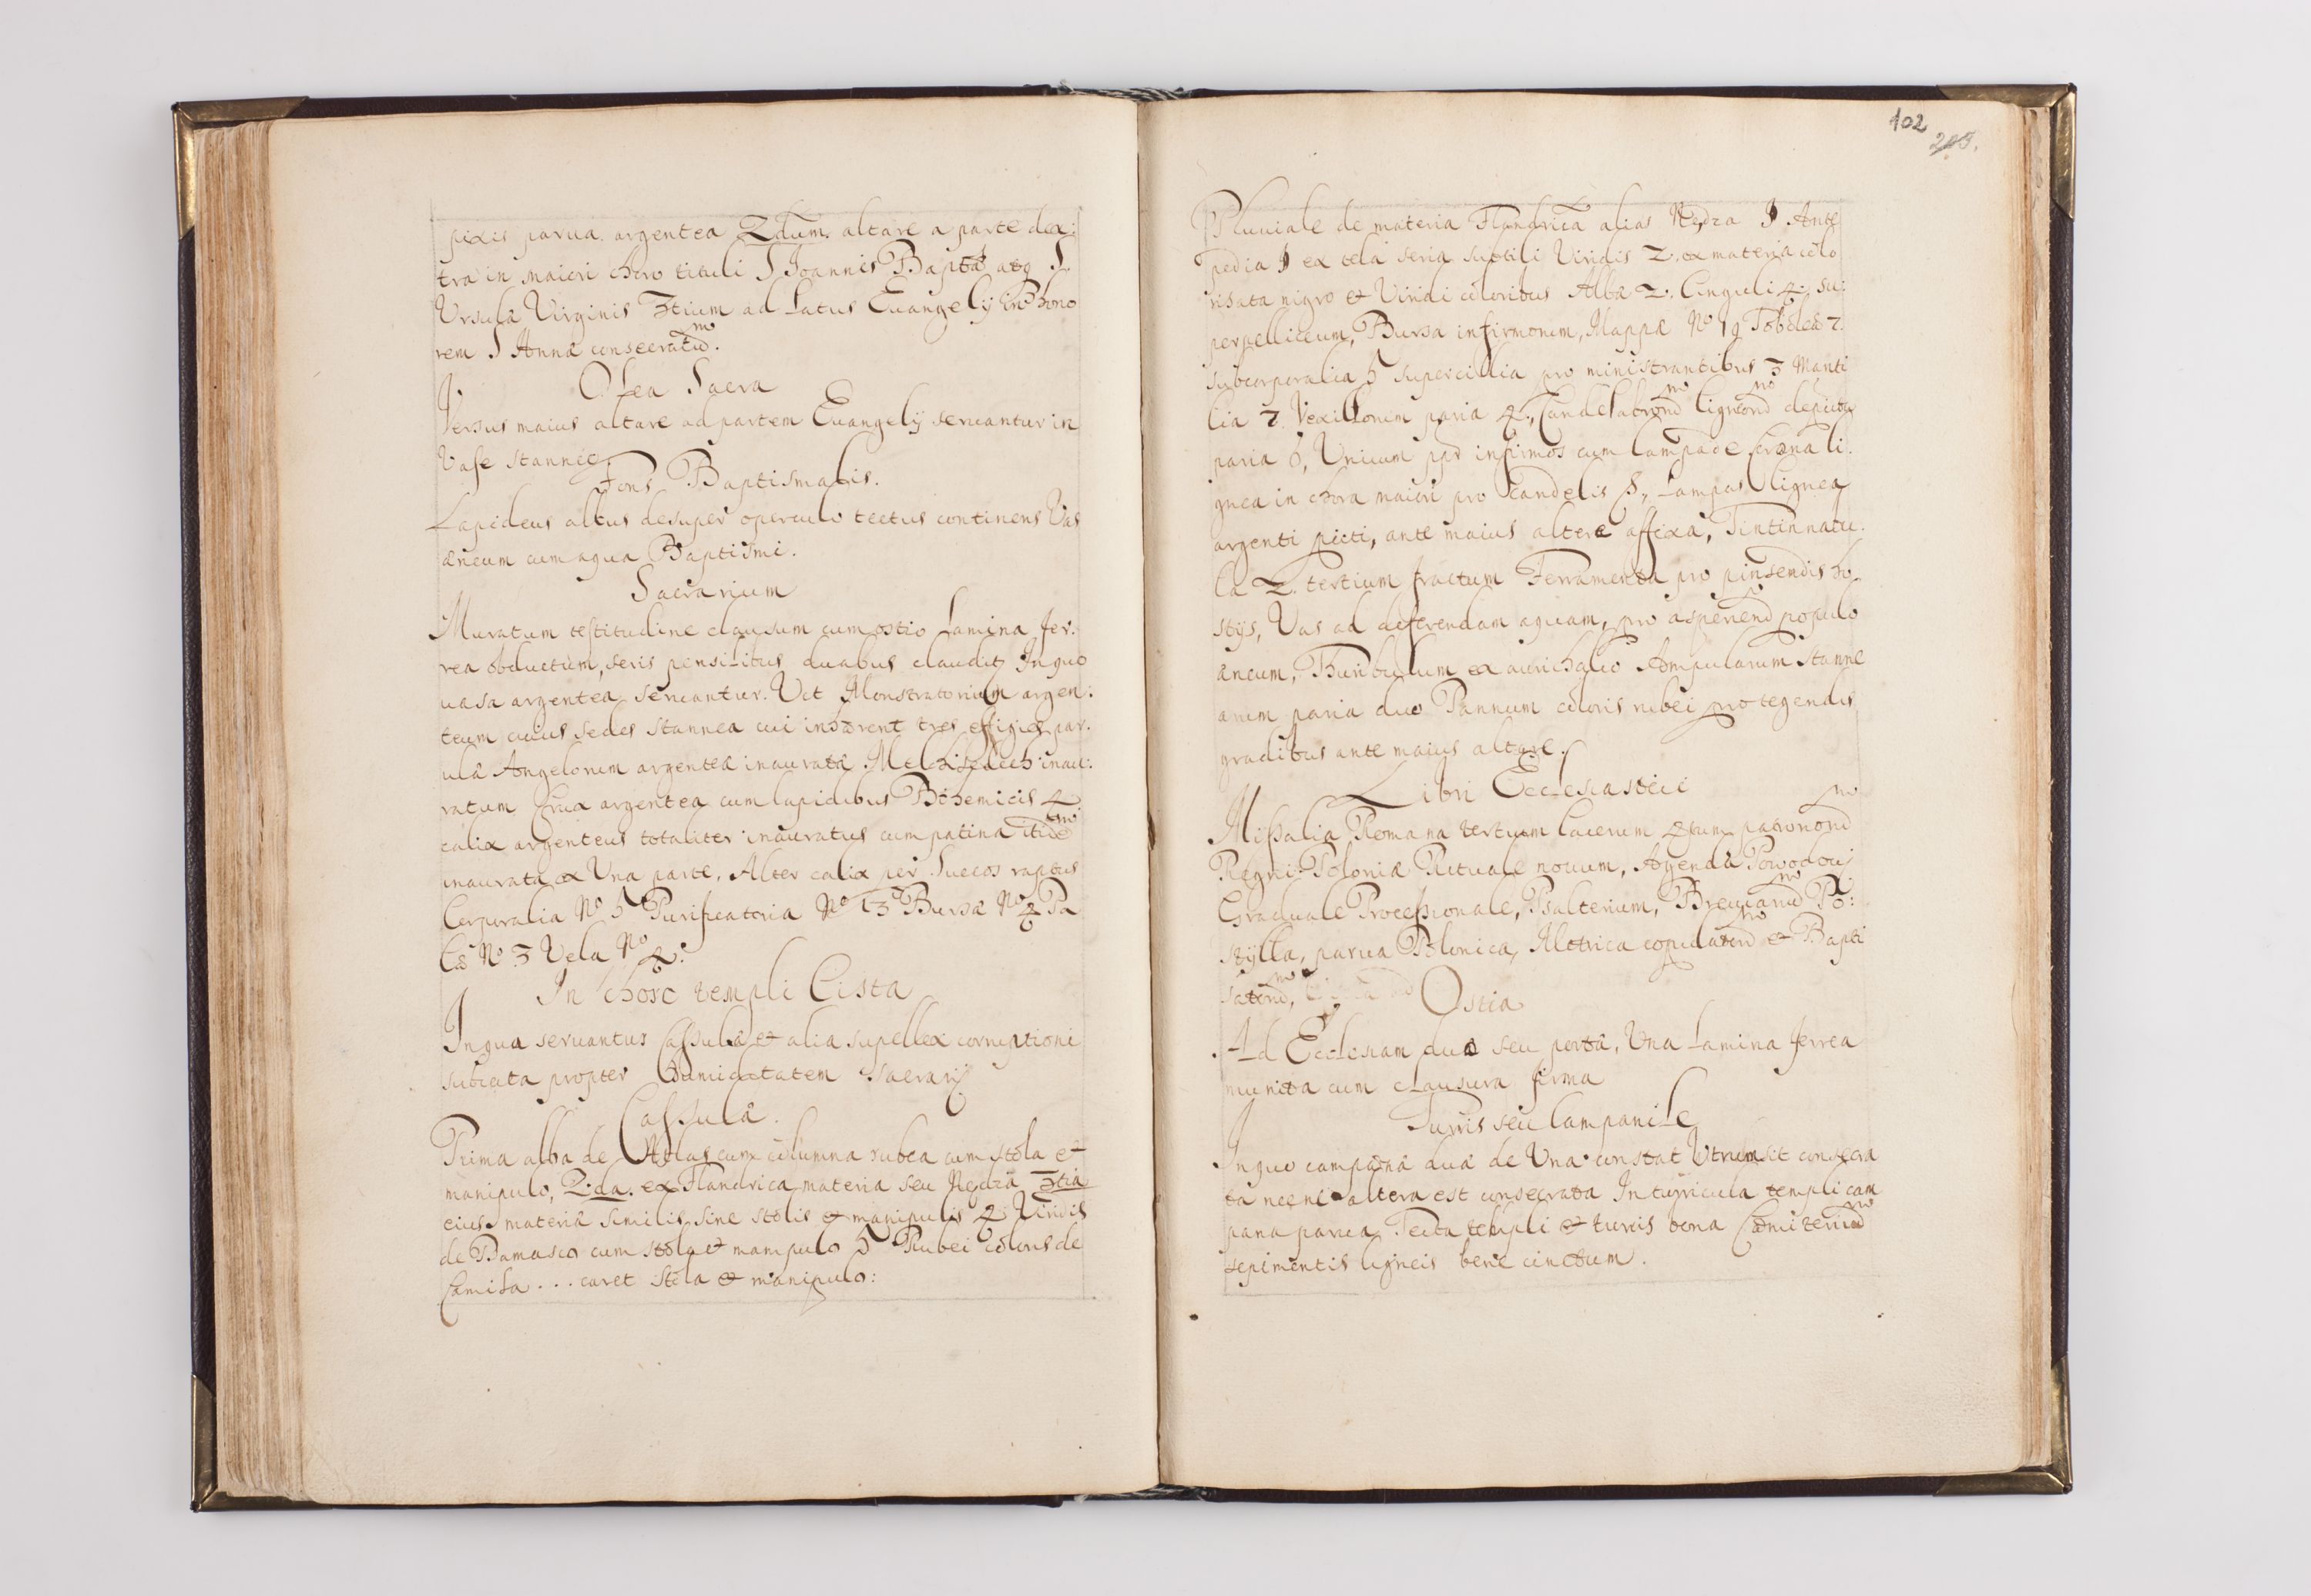 pixis parua argentea 2dum. altare a parte dex:
tra in maiori choro tituli S Joannis Bapta atq S.
Ursulæ Virginis 3tium ad latus Euangelij in hono
rem S Annæ consecratū.
Olea Sacra
Versus maius altare ad partem Euangelij seruantur in
Vase stanneo
Fons Baptismalis.
Lapideus altus desuper operculo tectus continens Vas
æneum cum aqua Baptismi.
Sacrarium
Muratum testitudine clausum cum ostio Lamina fer:
rea obductum, seris pensilibus duabus claudit In quo
uasa argentea seruantur. Vct Monstratorium argen:
teum cuius sedes stannea cui inhærent tres effigies par:
ulæ Angelorum argenteæ inauratæ. Melchisedech inau:
ratum Crux argentea cum lapidibus Bohemicis 4.
calix argenteus totaliter inauratus cum patina itidē
inaurata ex Una parte, Alter calix per Suecos raptus
Corporalia No 5 Purificatoria No 13 Bursæ No 4 Pa
læ No 3 Vela No 4:
In choro templi Cista
In qua seruantur Cassulæ et alia supellex corruptioni
subiecta propter humiditatem Sacrarij
Cassulæ.
Prima alba de Atlas cum columna rubea cum stola et
manipulo, 2:da. ex Flandrica materia seu Nedza 3tia
eius materiæ similis sine stolis et manipulis 4 Viridis
de Damasco cum stola et manipulo 5 Rubei coloris de
Camiha . . . caret stola et manipulo:
102
205.
Pluuiale de materia Flandrica alias Nedza 1 Ante
pedia 1 ex tela seria subtili Viridis 2. ex materia colo
risata nigro et Viridi coloribus Albæ 2. Cinguli 4. su:
perpelliceum, Bursa infirmorum, Mappæ No 19 Tobaleæ 7.
subcorporalia 5 supercillia pro ministrantibus 3 Manti
lia 7. Vexillorum paria 4., Candelabrorū ligneorū depicta
paria 6, Unicum ppr infirmos cum lampade Corona li:
gnea in choro maiori pro candelis 8., Lampas lignea
argenti picti, ante maius altare affixa, Tintinnabu:
la 2. tertium fractum Ferramenta pro pinsendis ho
stijs, Vas ad deferendam aquam, pro aspergendo populo
æneum, Thuribulum ex aurichalco Ampularum Stanne
arum paria duo Pannum coloris rubei pro tegendis
gradibus ante maius altare.
Libri Ecclesiastici
Missalia Romana tertium lacerum 4tum patronorū
Regni Poloniæ Rituale nouum, Agenda Powodou:
Graduale Processionale, Psalterium, Breuiariū Po:
stylla, parua Polonica, Mettrica copulatorū et Bapti
satorū,
Ostia
Ad Ecclesiam duæ seu portæ, Una Lamina ferrea
munita cum clausura firma
Turris seu Campanile
In quo campanæ duæ de Una constat Utrum sit consecra
ta nec ne altera est consecrata In turricula templi cam
pana parua, Tecta templi et turris bona Cæmiteriū
sepimentis ligneis bene cinctum.